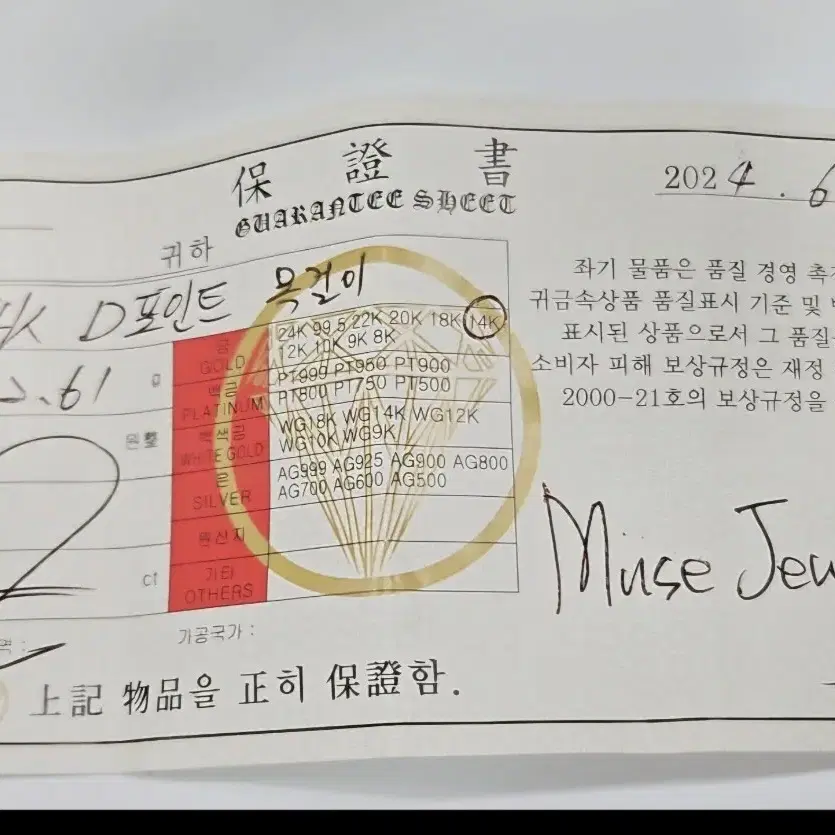 保 證 書
GUARANTEE SHEET
2024 . 6
귀하
K D포인트 목걸이
.61 g
원整
2
ct
금
GOLD
24K 99.5 22K 20K 18K 14K
12K 10K 9K 8K
백금
PLATINUM
PT999 PT950 PT900
PT800 PT750 PT500
백색금
WHITE GOLD
WG18K WG14K WG12K
WG10K WG9K
은
SILVER
AG999 AG925 AG900 AG800
AG700 AG600 AG500
원산지
기타
OTHERS
역 :
가공국가 :
上記 物品을 正히 保證함.
좌기 물품은 품질 경영 촉
귀금속상품 품질표시 기준 및
표시된 상품으로서 그 품질
소비자 피해 보상규정은 재정
2000-21호의 보상규정을
Muse Jew